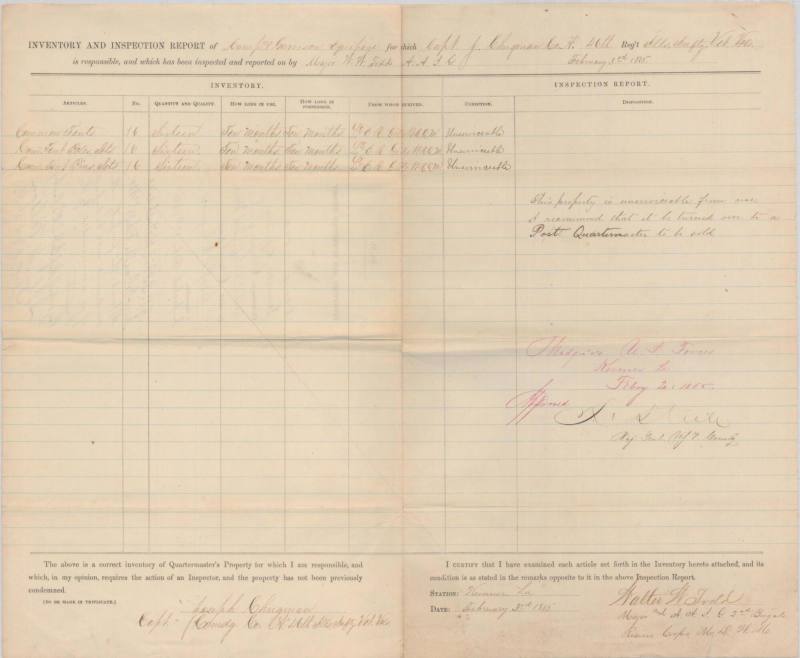 INVENTORY AND INSPECTION REPORT of Camp & Garrison Equipage for which Capt J. Clugman Co. 46th Reg't Ills. Infty Vol
is responsible, and which has been inspected and reported on by Major W. W. Todd A. A. I. G February 3rd 1865
INVENTORY. INSPECTION REPORT.
ARTICLES. No. QUANTITY AND QUALITY. HOW LONG IN USE. HOW LONG IN POSSESSION. FROM WHOM RECEIVED. CONDITION. DISPOSITION.
Common Tents 16 Sixteen Ten Months Ten Months Unserviceable
Com Tent Poles Sets 16 Sixteen Ten Months Ten Months Unserviceable
Com Tent Pins Sets 16 Sixteen Ten Months Ten Months Unserviceable
This property is unserviceable from use
I recommend that it be turned over to a
Post Quartermaster to be sold
Headqrs U. S. Forces
Kenner La
Feby 20 1865
Approved
Maj Genl Comdg
The above is a correct inventory of Quartermaster's Property for which I am responsible, and
which, in my opinion, requires the action of an Inspector, and the property has not been previously
condemned.
[TO BE MADE IN TRIPLICATE.]
Joseph Clugman
Capt Comdg Co. 46th Ills Infty Vol
I CERTIFY that I have examined each article set forth in the Inventory hereto attached, and its
condition is as stated in the remarks opposite to it in the above Inspection Report.
STATION: Kenner La
DATE: February 3rd 1865
Walter W Todd
Major and A. A. I. G 2nd Brigade
Reserve Corps